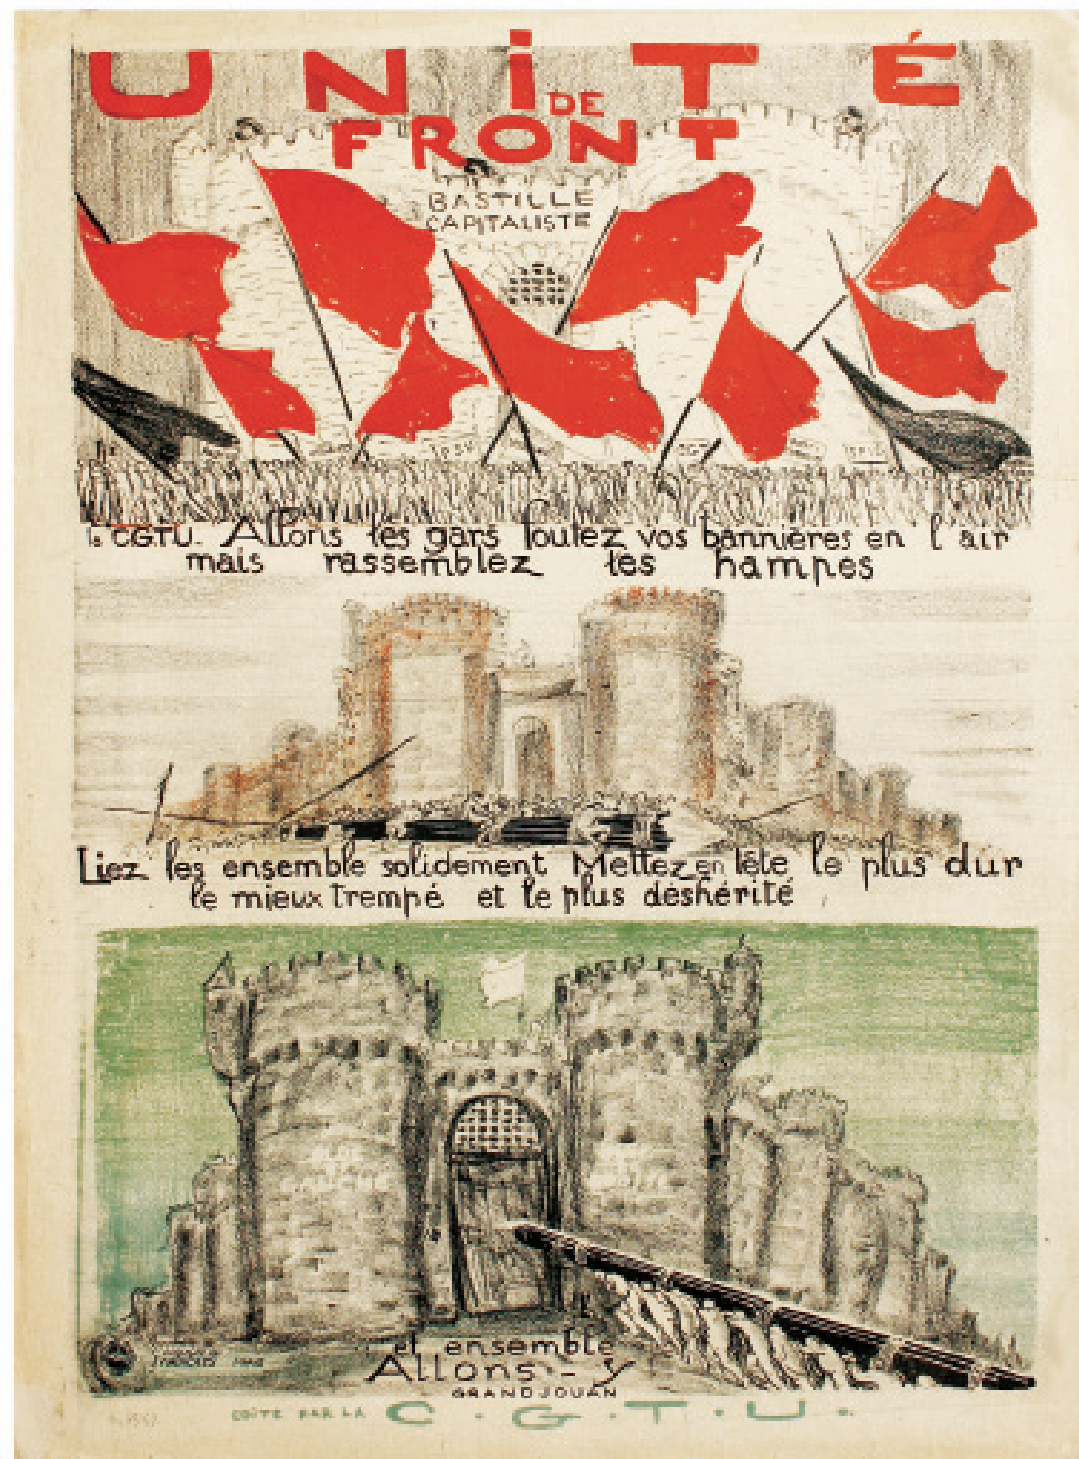 UNiTÉ
DE
FRONT
BASTILLE
CAPITALISTE
CGTU. Allons les gars foutez vos bannières en l'air
mais rassemblez les hampes
Liez les ensemble solidement Mettez en tête le plus dur
le mieux trempé et le plus déshérité
et ensemble
Allons-y
GRANDJOUAN
EDITÉ PAR LA C.G.T.U.